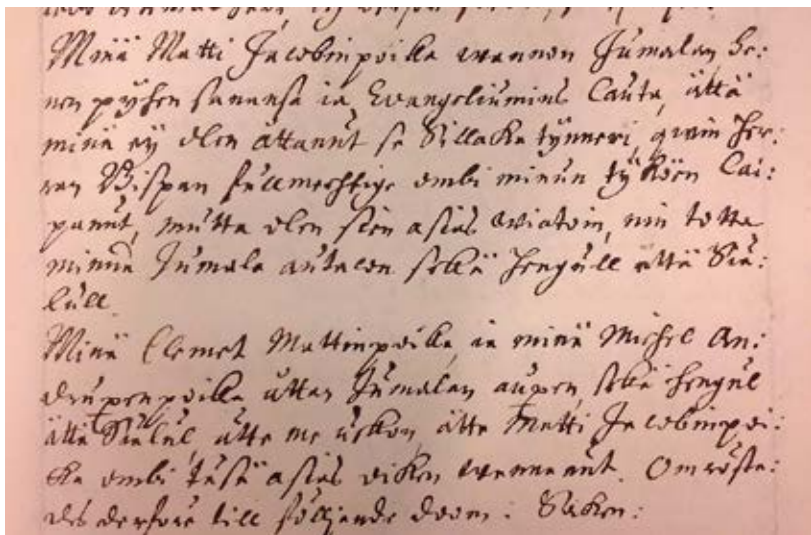 Minä Matti Jacobinpoika wannon Jumalan he:
nen pyhen sanansa ia Evangeliumins Cauta, ättä
minä ey olen ättanut se Sillaka tynneri, qwin her:
ran Bispan fullmechtige ombi minun tyköen Cai:
panut, mutta olen sien asias wiatoin, nin totta
minua Jumala autacon sekä hengell ättä Sie:
lull.
Minä Clemet Mattinpoika, ia minä Michel An:
drupenpoika uttan Jumalan aupen, sekä hengul
ättä Sielul, ätte me uskon, ätte Matti Jacobinpoi:
ka ombi täsä asias oiken wannonut. Omröste:
des derföre till följiande doom: Saken: